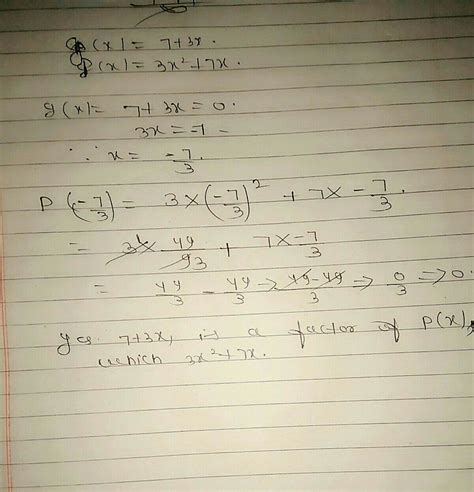 g(x) = 7+3x.
p(x) = 3x²+7x.
g(x) = 7+3x = 0.
3x = -7
∴ x = -7/3.
P(-7/3) = 3×(-7/3)² + 7×-7/3.
= 3× 49/93 + 7×-7/3
= 49/3 - 49/3 → 49-49/3 => 0/3 => 0.
yes 7+3x, is a factor of P(x),
which 3x²+7x.